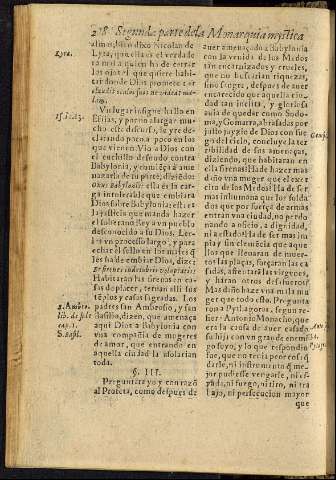 218 Segunda parte de la Monarquia mystica
Lyra.
almo, bien dixo Nicolao de
Lyra, que ella es el verdade
ro mal a quien ha de cerrar
los ojos el que quiere habi-
tar do Dios promete
claudit oculos suos ne videat ma-
lum.
Isai. 13.
Vn lugar insigne hallo en
Esaias, y por no alargar mu-
cho este discurso, le yre de-
clarando poco a poco en los
que vienen. Vio a Dios con
el cuchillo desnudo contra
Babylonia, y comiença a ame
nazarla de su parte, diziendo:
Onus Babylonis: ella es la car-
ga intolerable que embiara
Dios sobre Babylonia: esta es
la justicia que manda hazer
el soberano Rey a vn pueblo
desconocido a su Dios. Lee-
ra vn processo largo, y para
echar el sello en los males q
les ha de embiar Dios, dize:
Et sirenes in delubris voluptatis:
Habitaran las sirenas en ca-
sas de plazer, ternan alli sus
templos y casas sagradas. Los
S. Ambro.
lib. de fide
cap. 1.
S. Basil.
padres san Ambrosio, y san
Basilio, dizen, que amenaça
aqui Dios a Babylonia con
vna compañia de mugeres
de amor, que entrando en
aquella ciudad la assolarian
toda.
§. III.
Preguntara yo y con razõ
al Profeta, como despues de
auer amenaçado a Babylonia
con la venida de los Medos
tan encarniçados y crueles,
que no buscarian riquezas,
sino sangre, despues de auer
encarecido que aquella ciu-
dad tan inclita, y gloriosa
auia de quedar como Sodo-
ma, y Gomorra, abrasadas por
justo juyzio de Dios con fue
go del cielo, concluye la ter
ribilidad de sus amenaças,
diziendo, que habitaran en
ella sirenas? Ha de hazer mas
daño vna muger que el exer
cito de los Medos? Ha de ser
mas inhumana que los solda
dos que por fuerça de armas
entran vna ciudad, no perdo-
nando a oficio, a dignidad,
ni a estado? Ha de ser mas im
pia y sin clemẽcia que aque
llos que lleuaran de muer-
tos las plaças, forçaran las ca
sadas, afrentarã las virgenes,
y haran otros desafueros?
Mas dize que harà vna mu
ger que todo esto. Pregunta
ron a Pythagoras, segun re-
fiere Antonio Monacho, que
era la causa de auer casado
su hija con vn grande enemi
go suyo, y lo que respondio
fue, que no tenia peor cosa q
darle, ni instrumento q me-
jor pudiesse vengarle, ni es-
pada, ni fuego, ni tiro, ni tra
bajo, ni persecucion mayor
que